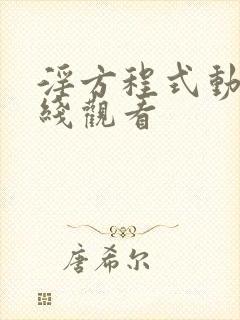 淫方程式動
綫觀看
唐希尔